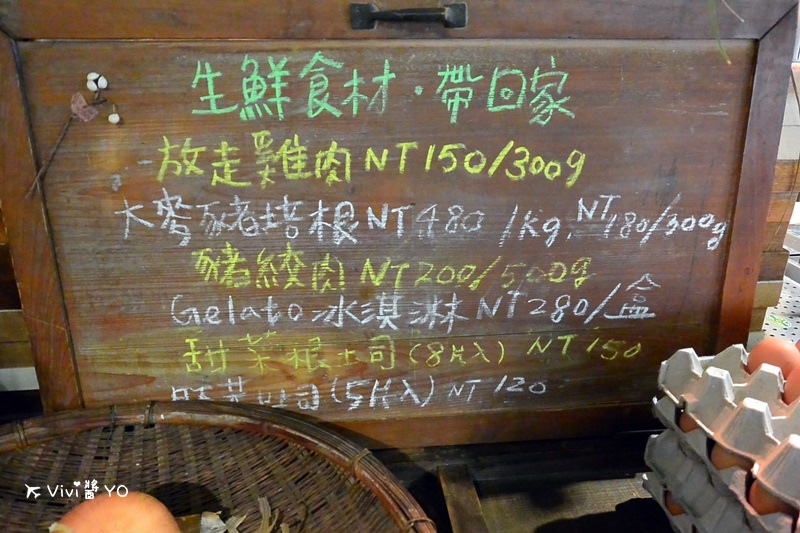 生鮮食材·帶回家
放走雞肉 NT 150/300g
大麥豬培根 NT 480 /Kg. NT 180/300g
豬絞肉 NT 200/500g
Gelato 冰淇淋 NT 280/盒
甜菜根土司 (8片入) NT 150
菜吐司 (5片入) NT 120
Vivi醬YO